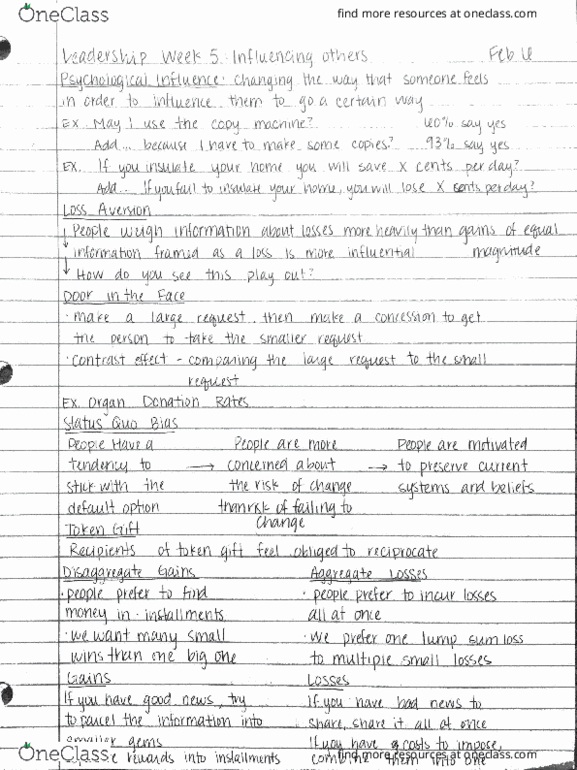 OneClass
find more resources at oneclass.com
Leadership Week 5: Influencing others
Psychological Influence: Changing the way that someone feels
in order to influence them to go a certain way
EX. May I use the copy machine? 60% say yes
Add... because I have to make some copies? 93% say yes
EX. If you insulate your home you will save X cents per day?
Add... If you fail to insulate your home, you will lose X cents per day?
Loss Aversion
↓ People weigh information about losses more heavily than gains of equal magnitude
↓ information framed as a loss is more influential
↓ How do you see this play out?
Door in the Face
· make a large request, then make a concession to get
the person to take the smaller request
· contrast effect - comparing the large request to the small
request
Ex. Organ Donation Rates
Status Quo Bias
People Have a tendency to stick with the default option → People are more concerned about the risk of change than risk of failing to change → People are motivated to preserve current systems and beliefs
Token Gift
Recipients of token gift feel obliged to reciprocate
Disaggregate Gains
· people prefer to find
money in installments
· we want many small
wins than one big one
Aggregate Losses
· people prefer to incur losses
all at once
· we prefer one lump sum loss
to multiple small losses
Gains
If you have good news, try
to parcel the information into
smaller gems
rewards into installments
Losses
If you have bad news to
share, share it all at once
If you have costs to impose,
them into one
OneClass
find more resources at oneclass.com